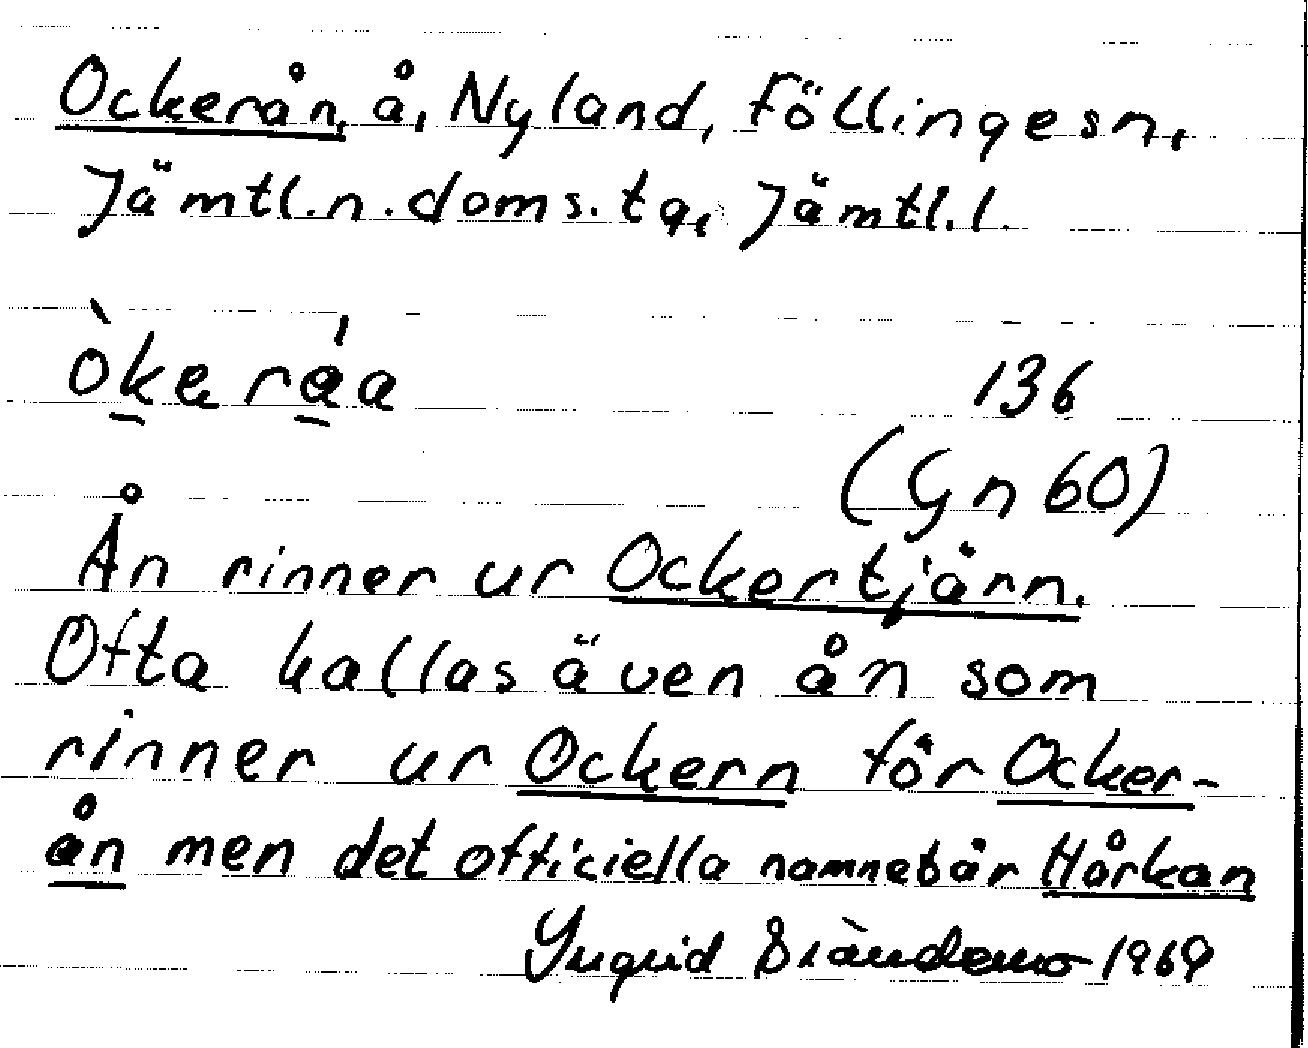 Ockerån, å, Nyland, Föllingesn,
Jämtl.n.doms.tg, Jämtl.l.
òkeráa 136
(Gn 60)
Ån rinner ur Ockertjärn.
Ofta kallas även ån som
rinner ur Ockern för Ocker-
ån men det officiella namnet är Hårkan
Yngrid Brändemo 1969